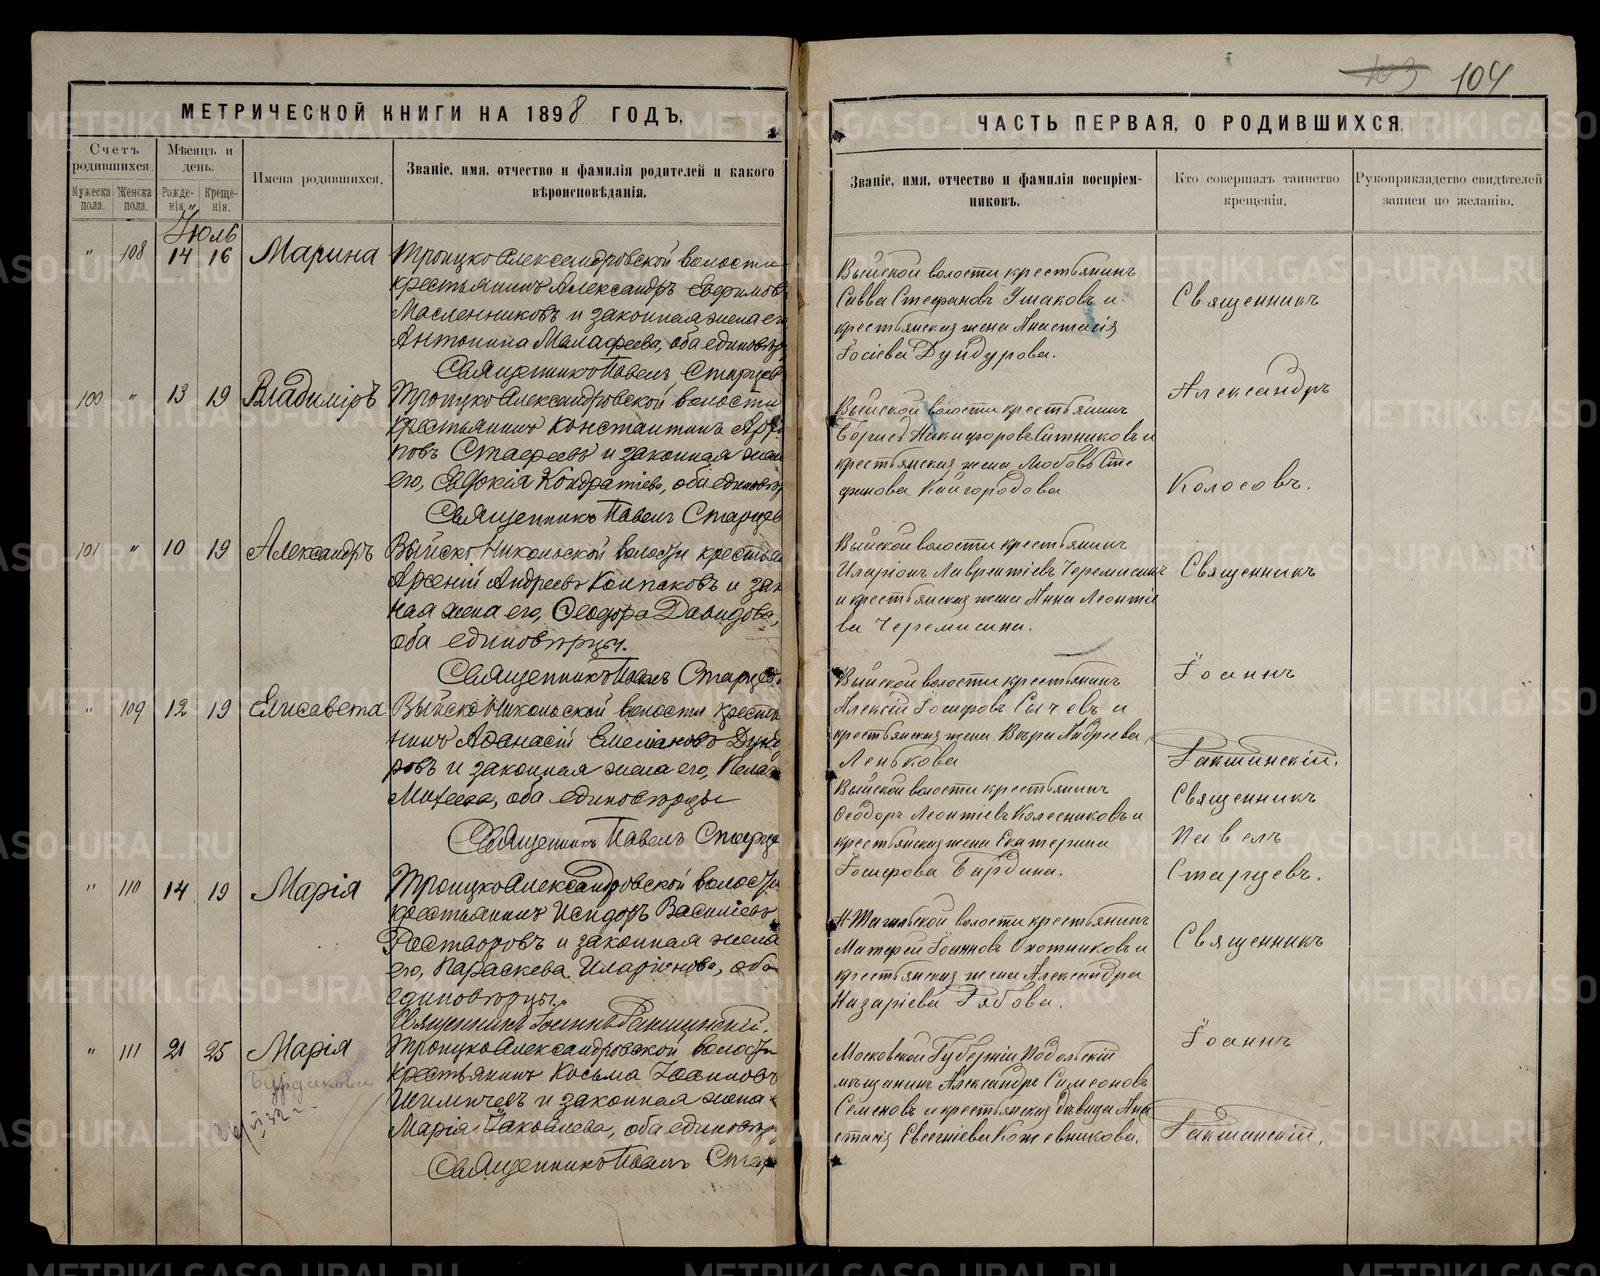 103 104
МЕТРИЧЕСКОЙ КНИГИ НА 1898 ГОДЪ,
Счетъ родившихся.
Мужеска пола.
Женска пола.
Мѣсяцъ и день.
Рожде-
нія.
Креще-
нія.
Имена родившихся.
Званіе, имя, отчество и фамилія родителей и какого
вѣроисповѣданія.
Іюль
" 108 14 16 Марина
ТроицкоАлександровской волости
крестьянинъ Александръ Евфимовъ
Масленниковъ и законная жена его
Антонина Малафеева, оба единовѣр
Священникъ Павелъ Старцев
100 " 13 19 Владиміръ
ТроицкоАлександровской волости
крестьянинъ Константинъ
и законная жена
его, Евдокія Кондратіева, оба единовѣр
Священникъ Павелъ Старцев
101 " 10 19 Александръ
Выйско Никольской волости крестья
Арсеній Андреевъ Колпаковъ и зак
ная жена его, Ѳеодора Давидова,
оба единовѣрцы.
Священникъ Павелъ Старцев
" 109 12 19 Елисавета
Выйско Никольской волости крестья
нинъ Аѳанасій Емеліановъ Дунду
ровъ и законная жена его, Пелаг
Михеева, оба единовѣрцы
Священникъ Павелъ Старце
" 110 14 19 Марія
ТроицкоАлександровской волости
крестьянинъ Исидоръ Василіевъ
Растворовъ и законная жена
его, Параскева Иларіонова, оба
единовѣрцы.
Священникъ Іоаннъ Гакшинскій.
" 111 21 25 Марія
ТроицкоАлександровской волости
крестьянинъ Косьма Іоанновъ
и законная жена
Марія Іаковлева, оба единовѣр
Священникъ Павелъ Стар
ЧАСТЬ ПЕРВАЯ, О РОДИВШИХСЯ.
Званіе, имя, отчество и фамилія воспріем-
никовъ.
Кто совершалъ таинство
крещенія.
Рукоприкладство свидѣтелей
записи по желанію.
Выйской волости крестьянинъ
Савва Стефановъ Ушаковъ и
крестьянская жена Анастасія
Іосіева Дундурова.
Священникъ
Александръ
Колосовъ.
Выйской волости крестьянинъ
Борисъ Никифоровъ Ситниковъ и
крестьянская жена Любовь Сте
фанова Кайгородова
Выйской волости крестьянинъ
Иларіонъ Лаврентіевъ Черемисинъ
и крестьянская жена Анна Леонтіе
ва Черемисина.
Священникъ
Іоаннъ
Гакшинскій.
Выйской волости крестьянинъ
Алексій Іосифовъ Сычевъ и
крестьянская жена Вѣра Андреева
Ленькова
Выйской волости крестьянинъ
Ѳеодоръ Леонтіевъ Колесниковъ и
крестьянская жена Екатерина
Іосифова Бардина.
Священникъ
Павелъ
Старцевъ.
Н-Тагильской волости крестьянинъ
Матфей Іоанновъ Охотниковъ и
крестьянская жена Александра
Назаріева Рябова.
Священникъ
Іоаннъ
Гакшинскій.
Московской Губерніи Подольскій
мѣщанинъ Александръ Симеоновъ
Семеновъ и крестьянская дѣвица Ана
стасія Евгеніева Кожевникова.
METRIKI.GASO-URAL.RU